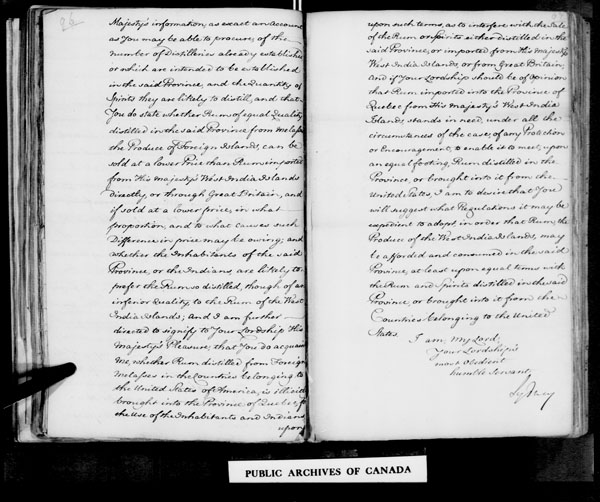 Majesty's information, as exact an Account
as You may be able to procure, of the
number of Distilleries already established
or which are intended to be established
in the said Province, and the Quantity of
Spirits they are likely to distill, and that
You do state whether Rum of equal Quality
distilled in the said Province from Melasses
the Produce of Foreign Islands, can be
sold at a lower Price than Rum imported
from His Majesty's West India Islands
directly, or through Great Britain, and
if sold at a lower price, in what
proportion, and to what causes such
Difference in price may be owing; and
whether the Inhabitants of the said
Province, or the Indians, are likely to
prefer the Rum so distilled, though of an
inferior Quality, to the Rum of the West
India Islands; And I am further
directed to signify to Your Lordship His
Majesty's Pleasure, that You do acquaint
Me, whether Rum distilled from Foreign
Melasses in the Countries belonging to
the United States of America, is
brought into the Province of Quebec, for
the Use of the Inhabitants and Indians
upon
upon such terms, as to interfere with the Sale
of the Rum or Spirits either distilled in the
said Province, or imported from His Majesty's
West India Islands, or from Great Britain;
And if Your Lordship should be of opinion
that Rum imported into the Province of
Quebec from His Majesty's West India
Islands, stands in need, under all the
circumstances of the case, of any Protection
or Encouragement, to enable it to meet, upon
an equal footing, Rum distilled in the
Province, or brought into it from the
United States, I am to desire that You
will suggest what Regulations it may be
expedient to adopt, in order that Rum, the
Produce of the West India Islands, may
be afforded and consumed in the said
Province, at least upon equal terms with
the Rum and Spirits distilled in the said
Province, or brought into it from the
Countries belonging to the United
States.
I am, My Lord,
Your Lordship's
most obedient
humble Servant,
Sydney
PUBLIC ARCHIVES OF CANADA